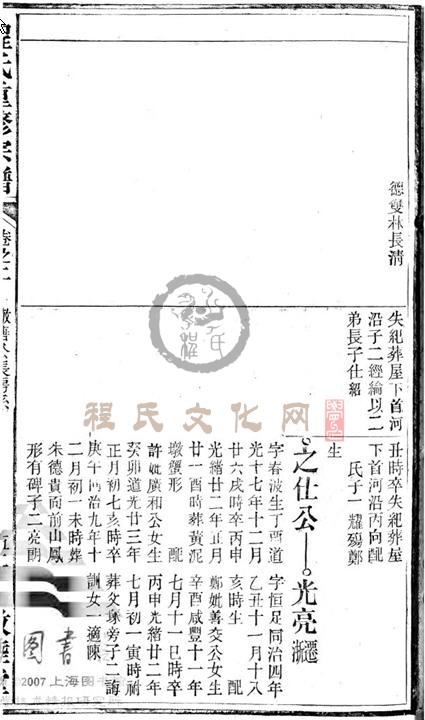 德雙林長清
失紀葬屋下首河
沿子二經綸以二
弟長子仕紹
丑時卒失紀葬屋
下首河沿丙向配
氏子一耀殤鄭
生
之仕公
光亮
遷浙
字春波生丁酉道
光十七年十二月
廿六戌時卒丙申
光緒廿二年正月
廿一酉時葬黃泥
墩蟹形 配
許妣廣和公女生
癸卯道光廿三年
正月初七亥時卒
庚午同治九年十
二月初一未時葬
朱德貴面前山鳳
形有碑子二亮朗
字恒足同治四年
乙丑十一月十八
亥時生 配
鄭妣善交公女生
辛酉咸豐十一年
七月十一巳時卒
丙申光緒廿二年
七月初一寅時祔
葬文塚旁子二誨
訓女一適陳
程氏重修宗譜
卷之二
程氏文化网
圖書
©2007上海图